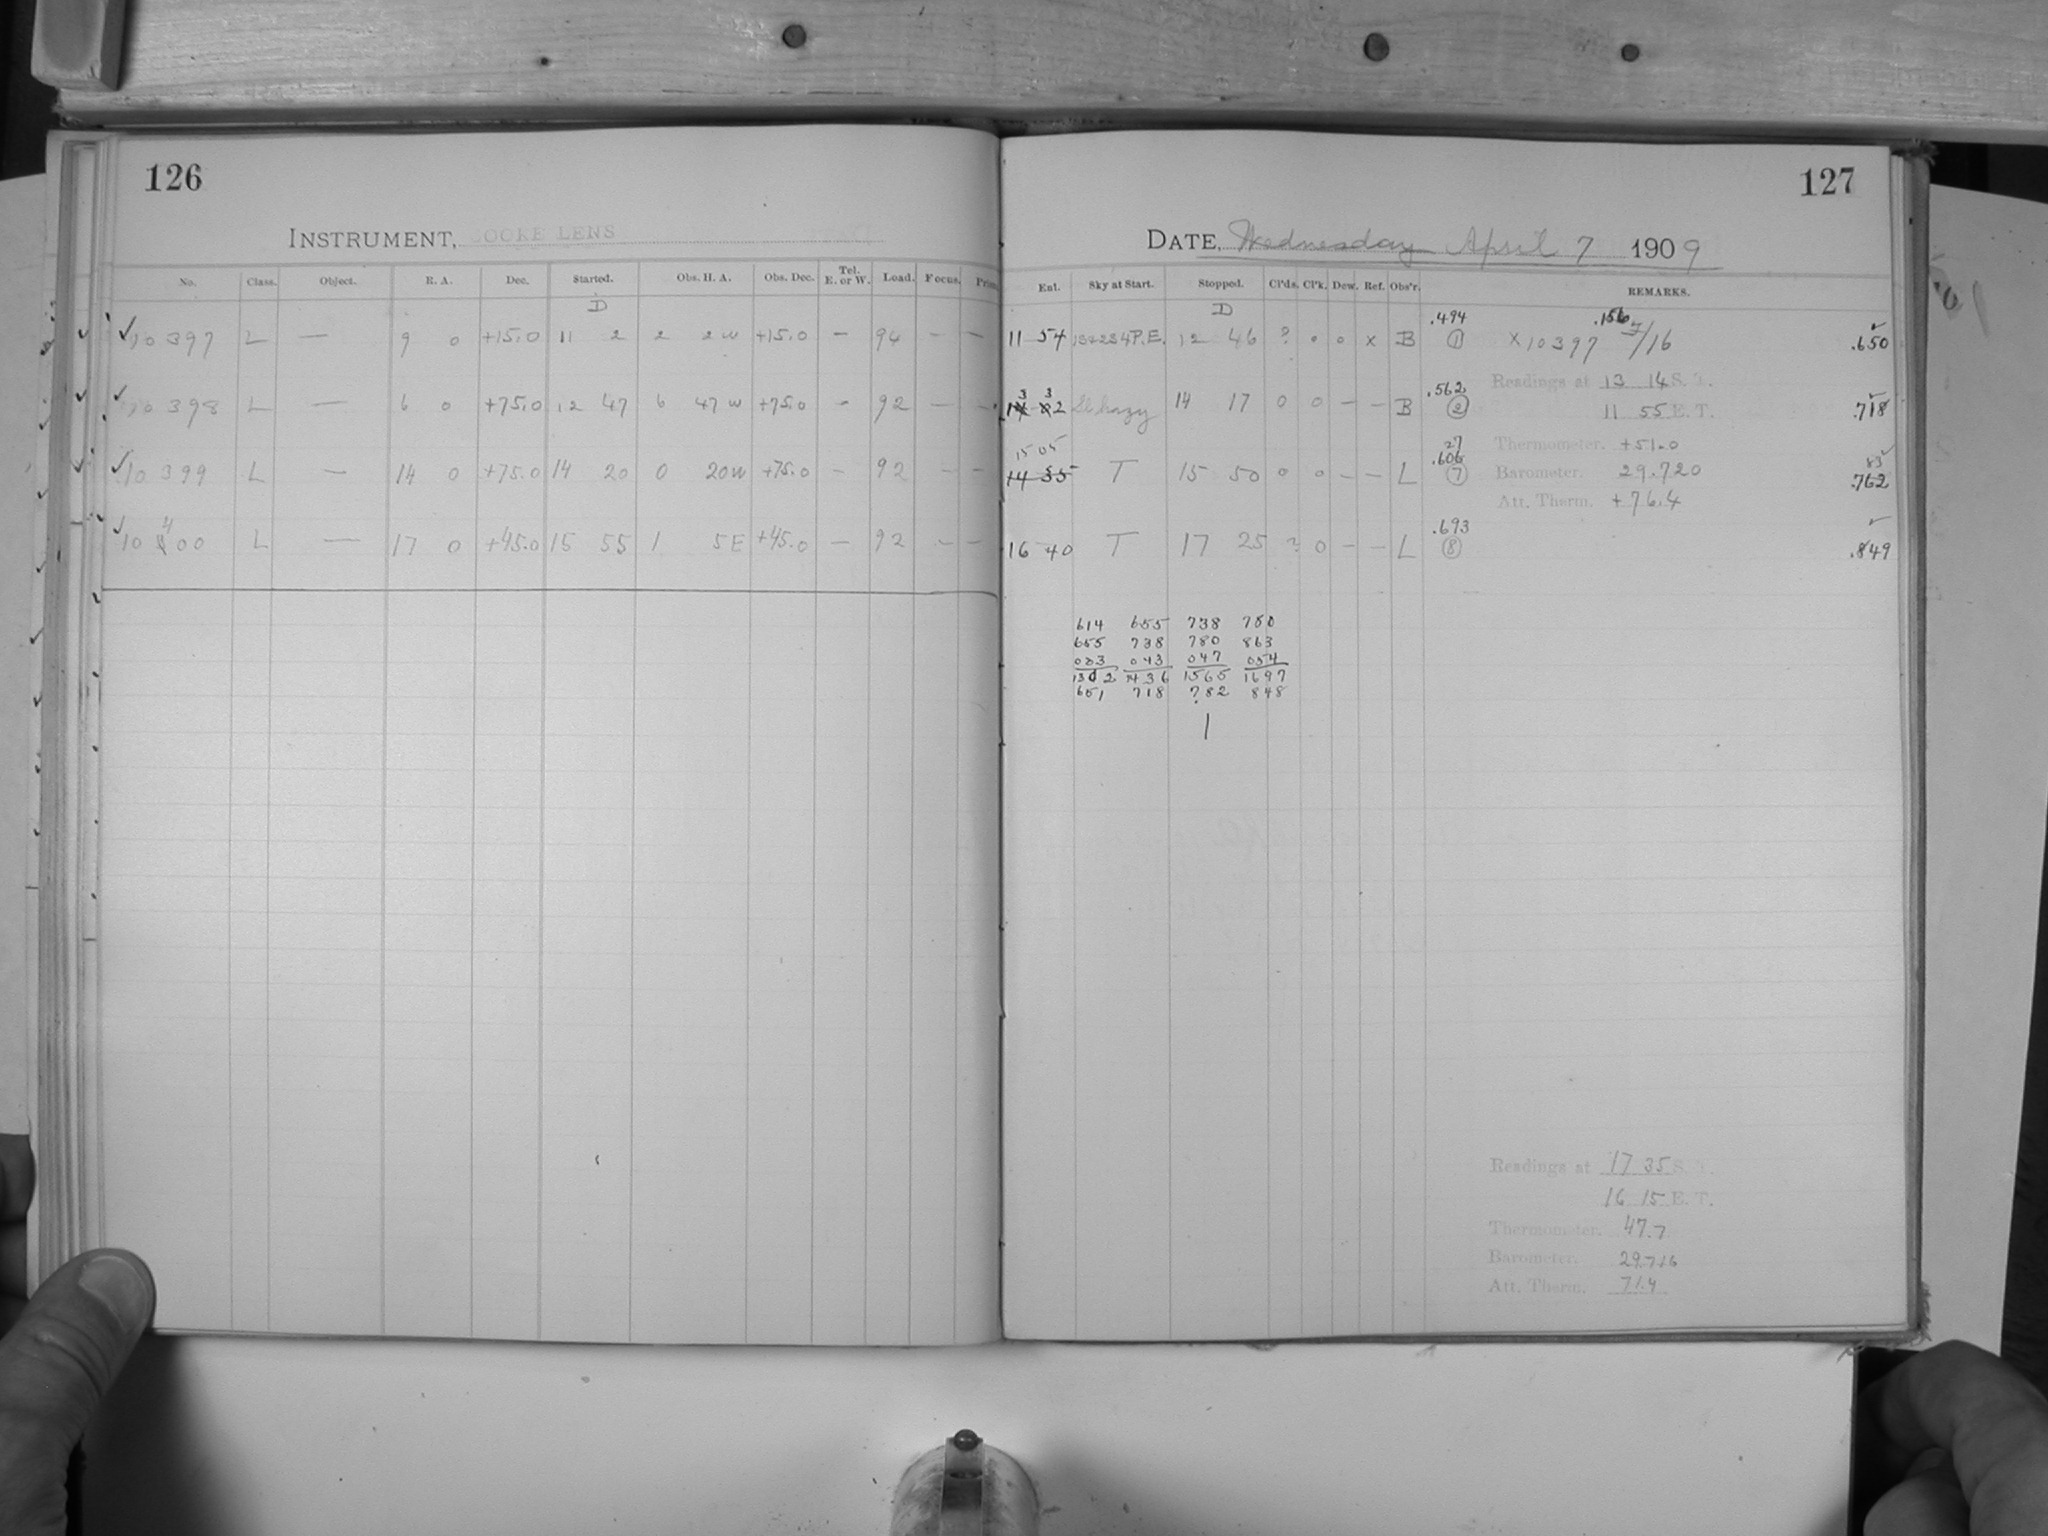 126
INSTRUMENT, COOKE LENS
No. Class. Object. R. A. Dec. Started. Obs. H. A. Obs. Dec. Tel. E. or W. Load. Focus.
D
10397 L — 9 0 +15.0 11 2 2 2W +15.0 — 94 — —
10398 L — 6 0 +75.0 12 47 6 47W +75.0 — 92 — —
10399 L — 14 0 +75.0 14 20 0 20W +75.0 — 92 — —
10400 L — 17 0 +45.0 15 55 1 5E +45.0 — 92 — —
127
DATE, Wednesday April 7 1909
Ent. Sky at Start. Stopped. Cl'ds. Cl'k. Dew. Ref. Obs'r. REMARKS.
D
.494 .156
11 54 P.E. 12 46 ? 0 0 x B 1 x 10397 7/16 .650
Readings at 13 14 S. T.
3 3 .562
2 Sl. hazy 14 17 0 0 — — B 2 11 55 E. T. .718
15 05 27
Thermometer. +51.0
.606 83
14 55 T 15 50 0 0 — — L 7 Barometer. 29.720 .762
Att. Therm. +76.4
.693
16 40 T 17 25 ? 0 — — L 8 .849
614 655 738 780
655 738 780 863
033 043 047 054
1302 1436 1565 1697
651 718 782 848
Readings at 17 35 S. T.
16 15 E. T.
Thermometer. 47.7
Barometer. 29.716
Att. Therm. 71.4